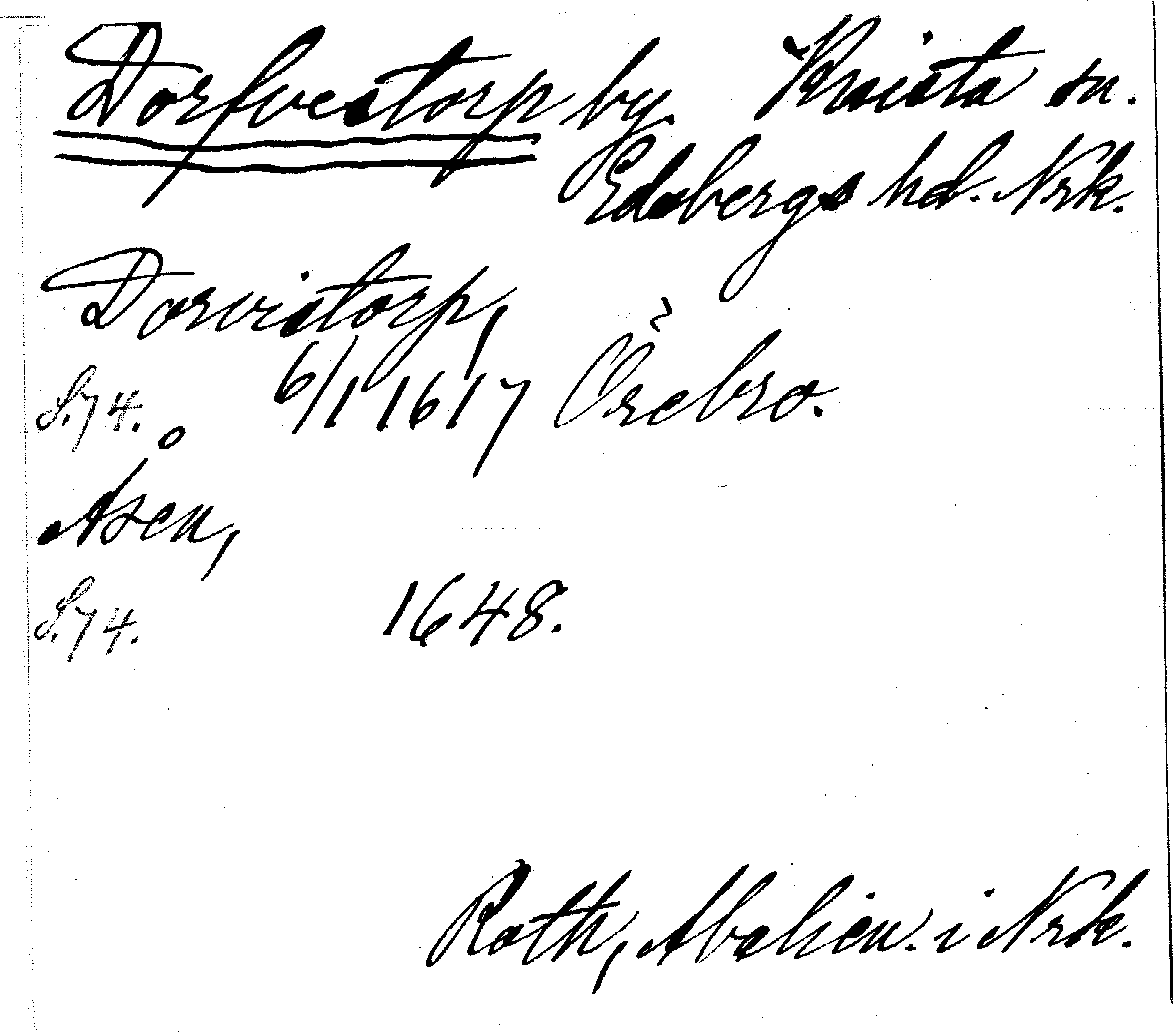 Dorfvestorp by Knista sn.
Edsbergs hd. Nrk.
Dorvistorp,
S. 74. 6/1 1617 Örebro.
Åsen,
S. 74. 1648.
Roth, Abalien. i Nrk.